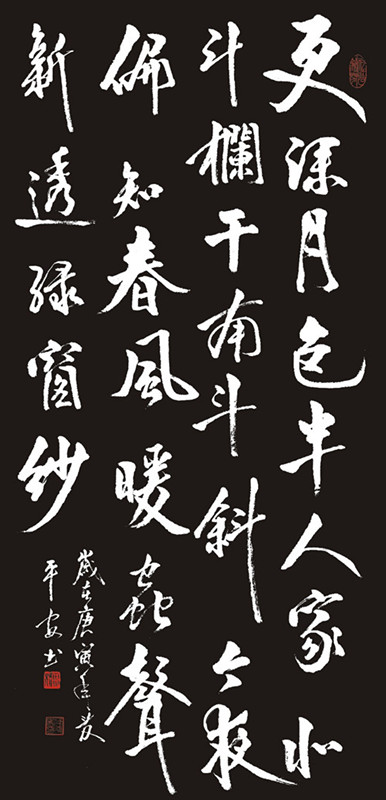 更深月色半人家北
斗欄干南斗斜今夜
偏知春風暖蟲聲
新透緑窗紗
歲在庚寅年
平安書